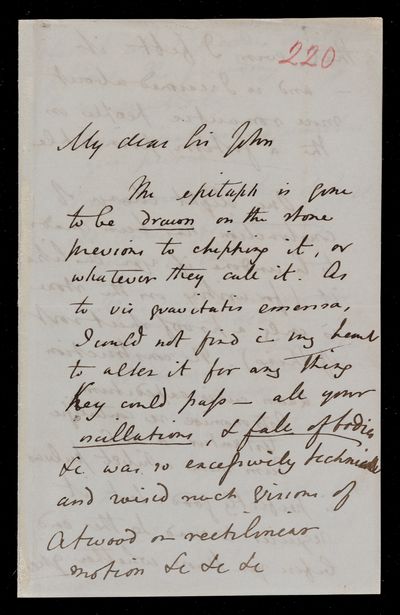 220
My dear Sir John
The epitaph is gone
to be drawn on the stone
previous to chipping it, or
whatever they call it. As
to vis gravitatis emensa,
I could not find in my heart
to alter it for any thing
Key could pass — all your
oscillations, & fall of bodies
&c was so excessively technical
and raised such visions of
Atwood on rectilinear
motion &c &c &c